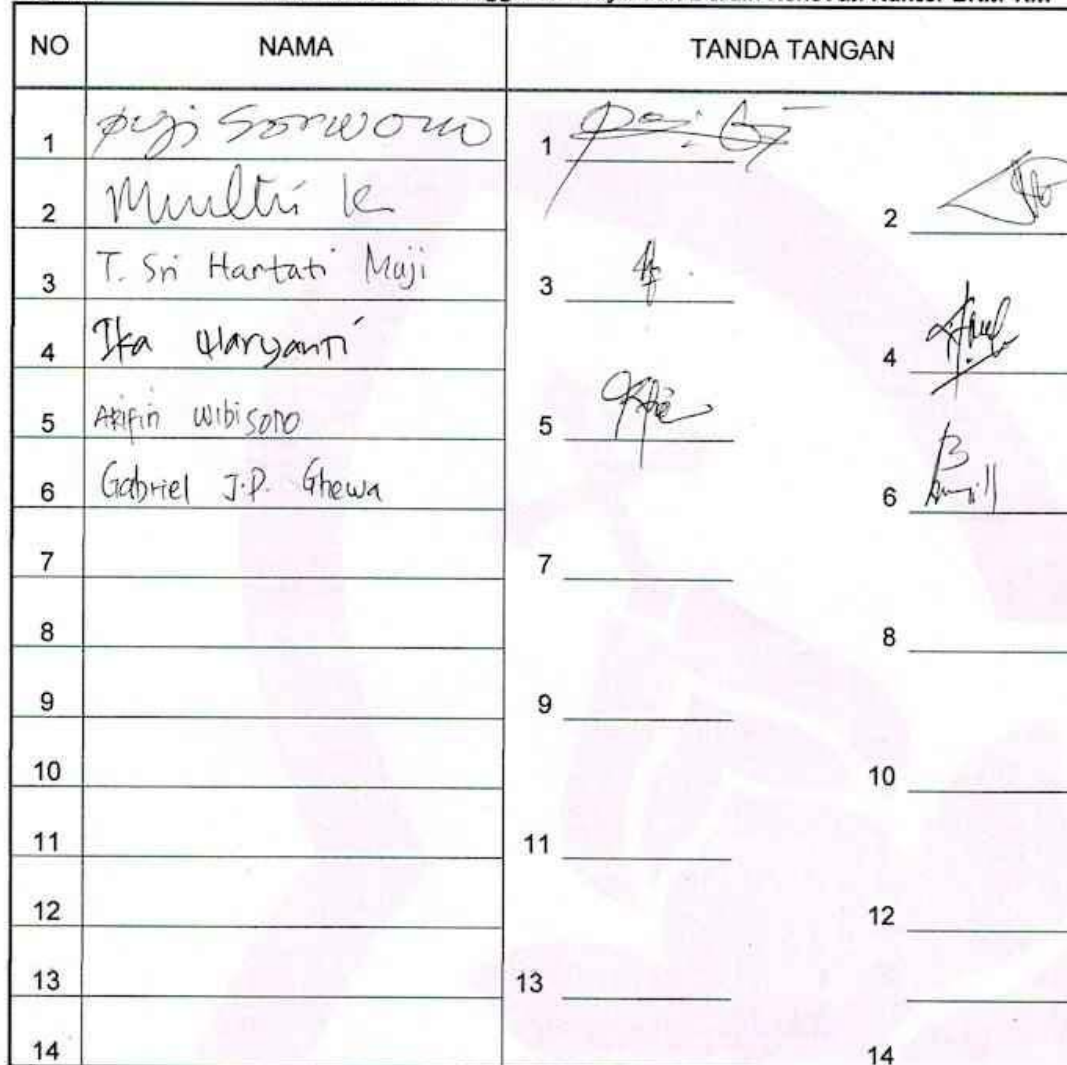 NO NAMA TANDA TANGAN
1 Puji Sorwono 1
2 Multi K 2
3 T. Sri Hartati Muji 3
4 Ika Haryanti 4
5 Arifin Wibisono 5
6 Gabriel J.P. Ghewa 6
7 7
8 8
9 9
10 10
11 11
12 12
13 13
14 14